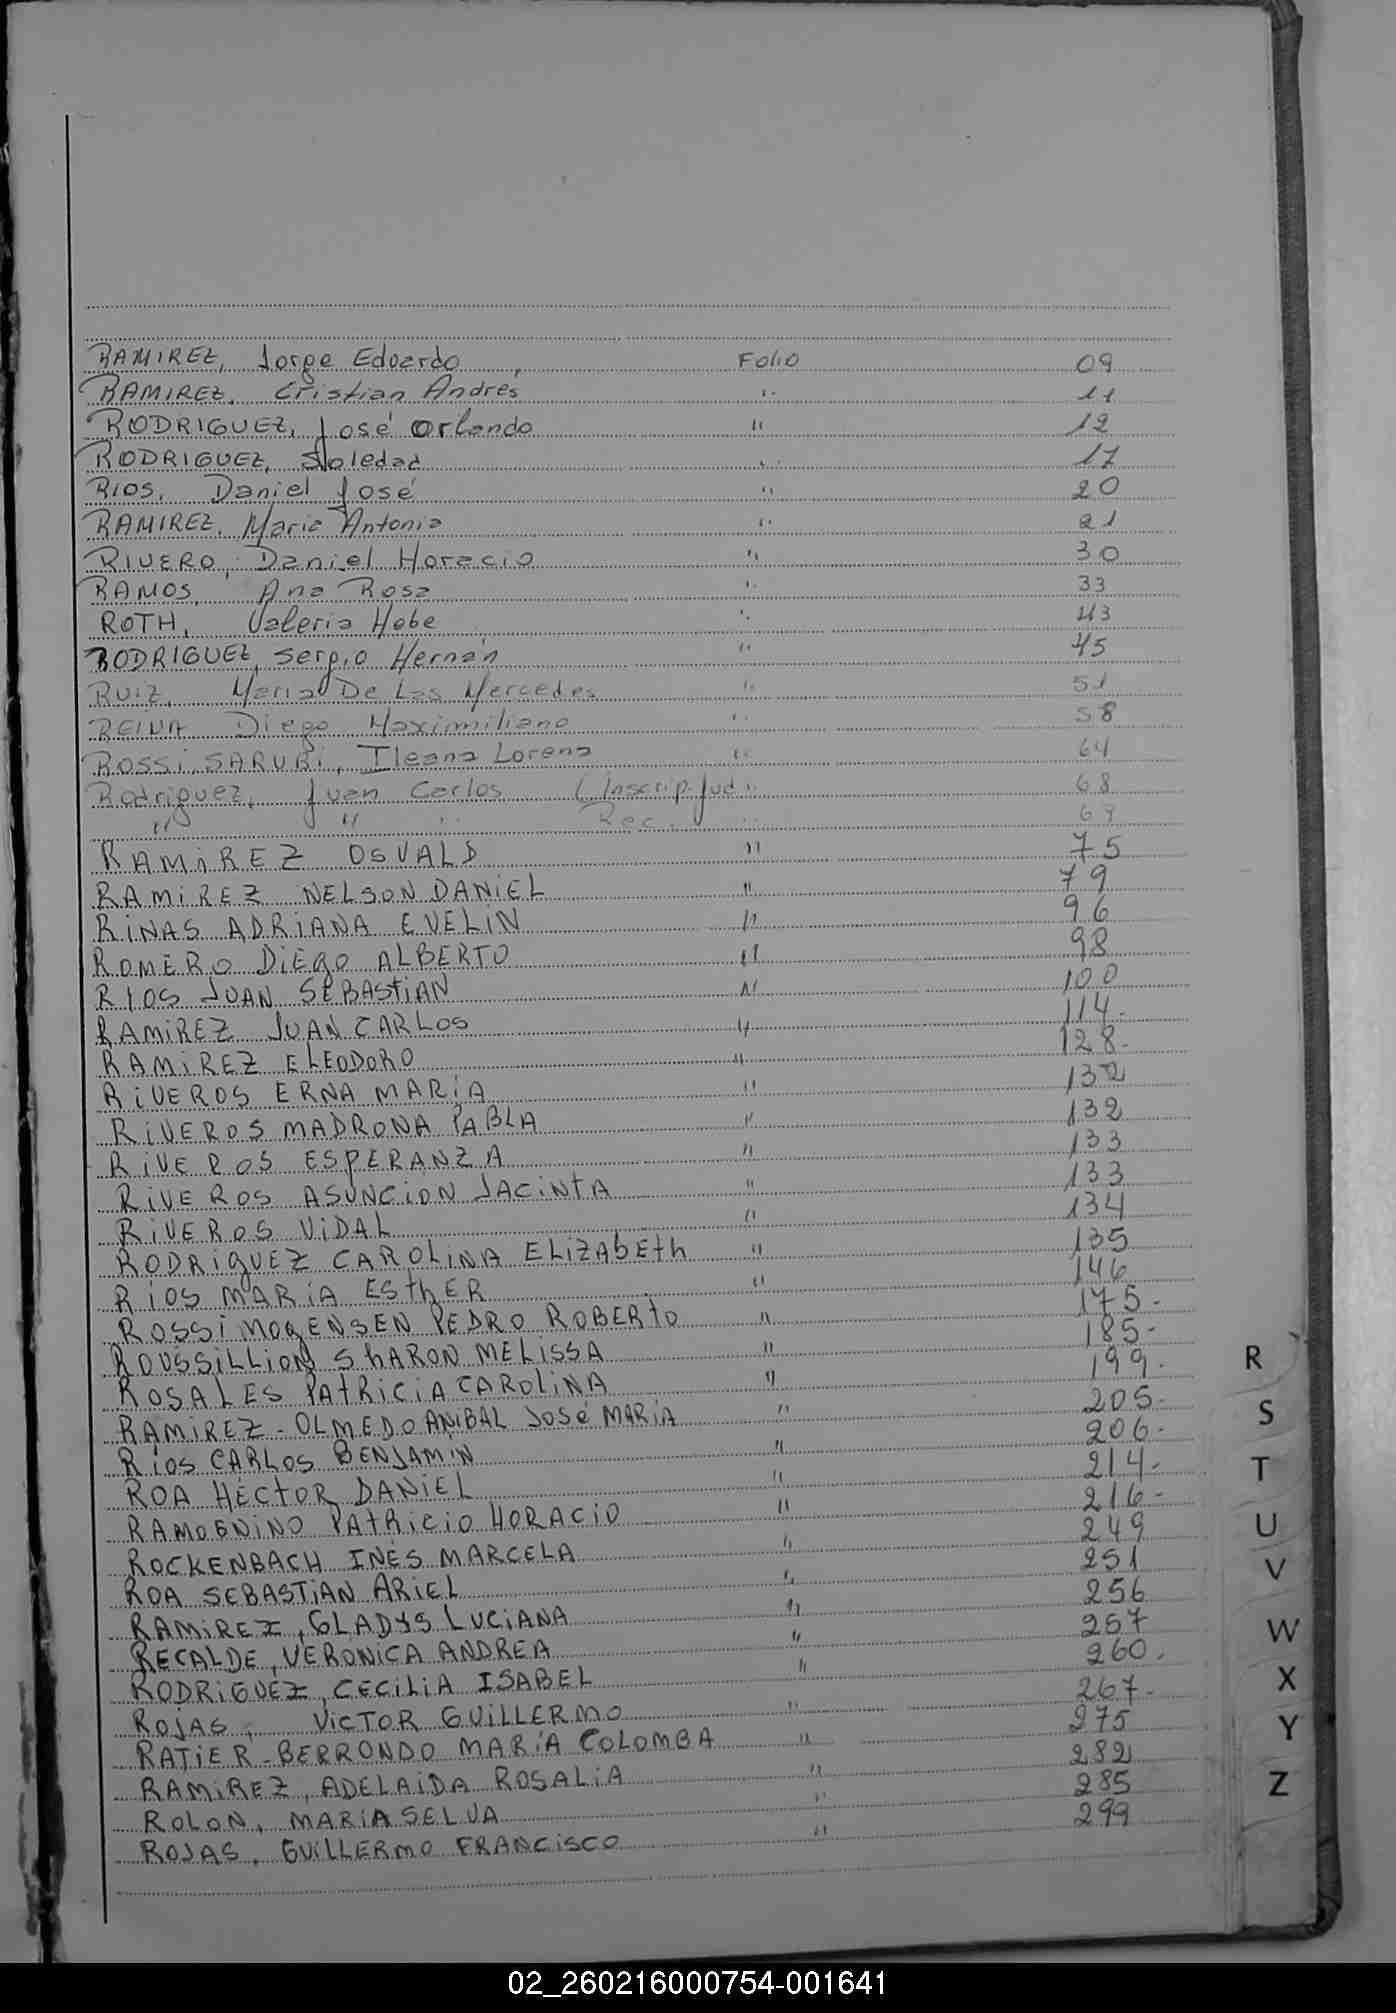 RAMIREZ, Jorge Edoardo, Folio 09
RAMIREZ, Cristian Andrés " 11
RODRIGUEZ, José Orlando " 12
RODRIGUEZ, Soledad " 17
RIOS, Daniel José " 20
RAMIREZ, Maria Antonia " 21
RIVERO, Daniel Horacio " 30
RAMOS, Ana Rosa " 33
ROTH, Valeria Hebe " 43
RODRIGUEZ, Sergio Hernán " 45
RUIZ, Maria De Las Mercedes " 51
REINA Diego Maximiliano " 58
ROSSI SARUBI, Ileana Lorena " 64
Rodriguez, Juan Carlos (Inscrip. Jud " 68
" " " Rec. " 69
RAMIREZ OSVALD " 75
RAMIREZ NELSON DANIEL " 79
RINAS ADRIANA EVELIN " 96
ROMERO DIEGO ALBERTO " 98
RIOS JUAN SEBASTIAN " 100
RAMIREZ JUAN CARLOS " 114.
RAMIREZ ELEODORO " 128.
RIVEROS ERNA MARIA " 132
RIVEROS MADRONA PABLA " 132
RIVEROS ESPERANZA " 133
RIVEROS ASUNCION JACINTA " 133
RIVEROS VIDAL " 134
RODRIGUEZ CAROLINA ELIZABETH " 135
RIOS MARIA ESTHER " 146
ROSSI MOGENSEN PEDRO ROBERTO " 175.
ROUSSILLION SHARON MELISSA " 185.
ROSALES PATRICIA CAROLINA " 199.
RAMIREZ - OLMEDO ANIBAL JOSÉ MARIA " 205.
RIOS CARLOS BENJAMIN " 206.
ROA HECTOR DANIEL " 214.
RAMOGNINO PATRICIO HORACIO " 216.
ROCKENBACH INES MARCELA " 249
ROA SEBASTIAN ARIEL " 251
RAMIREZ, GLADYS LUCIANA " 256
RECALDE, VERONICA ANDREA " 257
RODRIGUEZ, CECILIA ISABEL " 260.
ROJAS, VICTOR GUILLERMO " 267.
RATIER - BERRONDO MARIA COLOMBA " 275
RAMIREZ, ADELAIDA ROSALIA " 282
ROLON, MARIA SELVA " 285
ROJAS, GUILLERMO FRANCISCO " 299
R
S
T
U
V
W
X
Y
Z
02_260216000754-001641